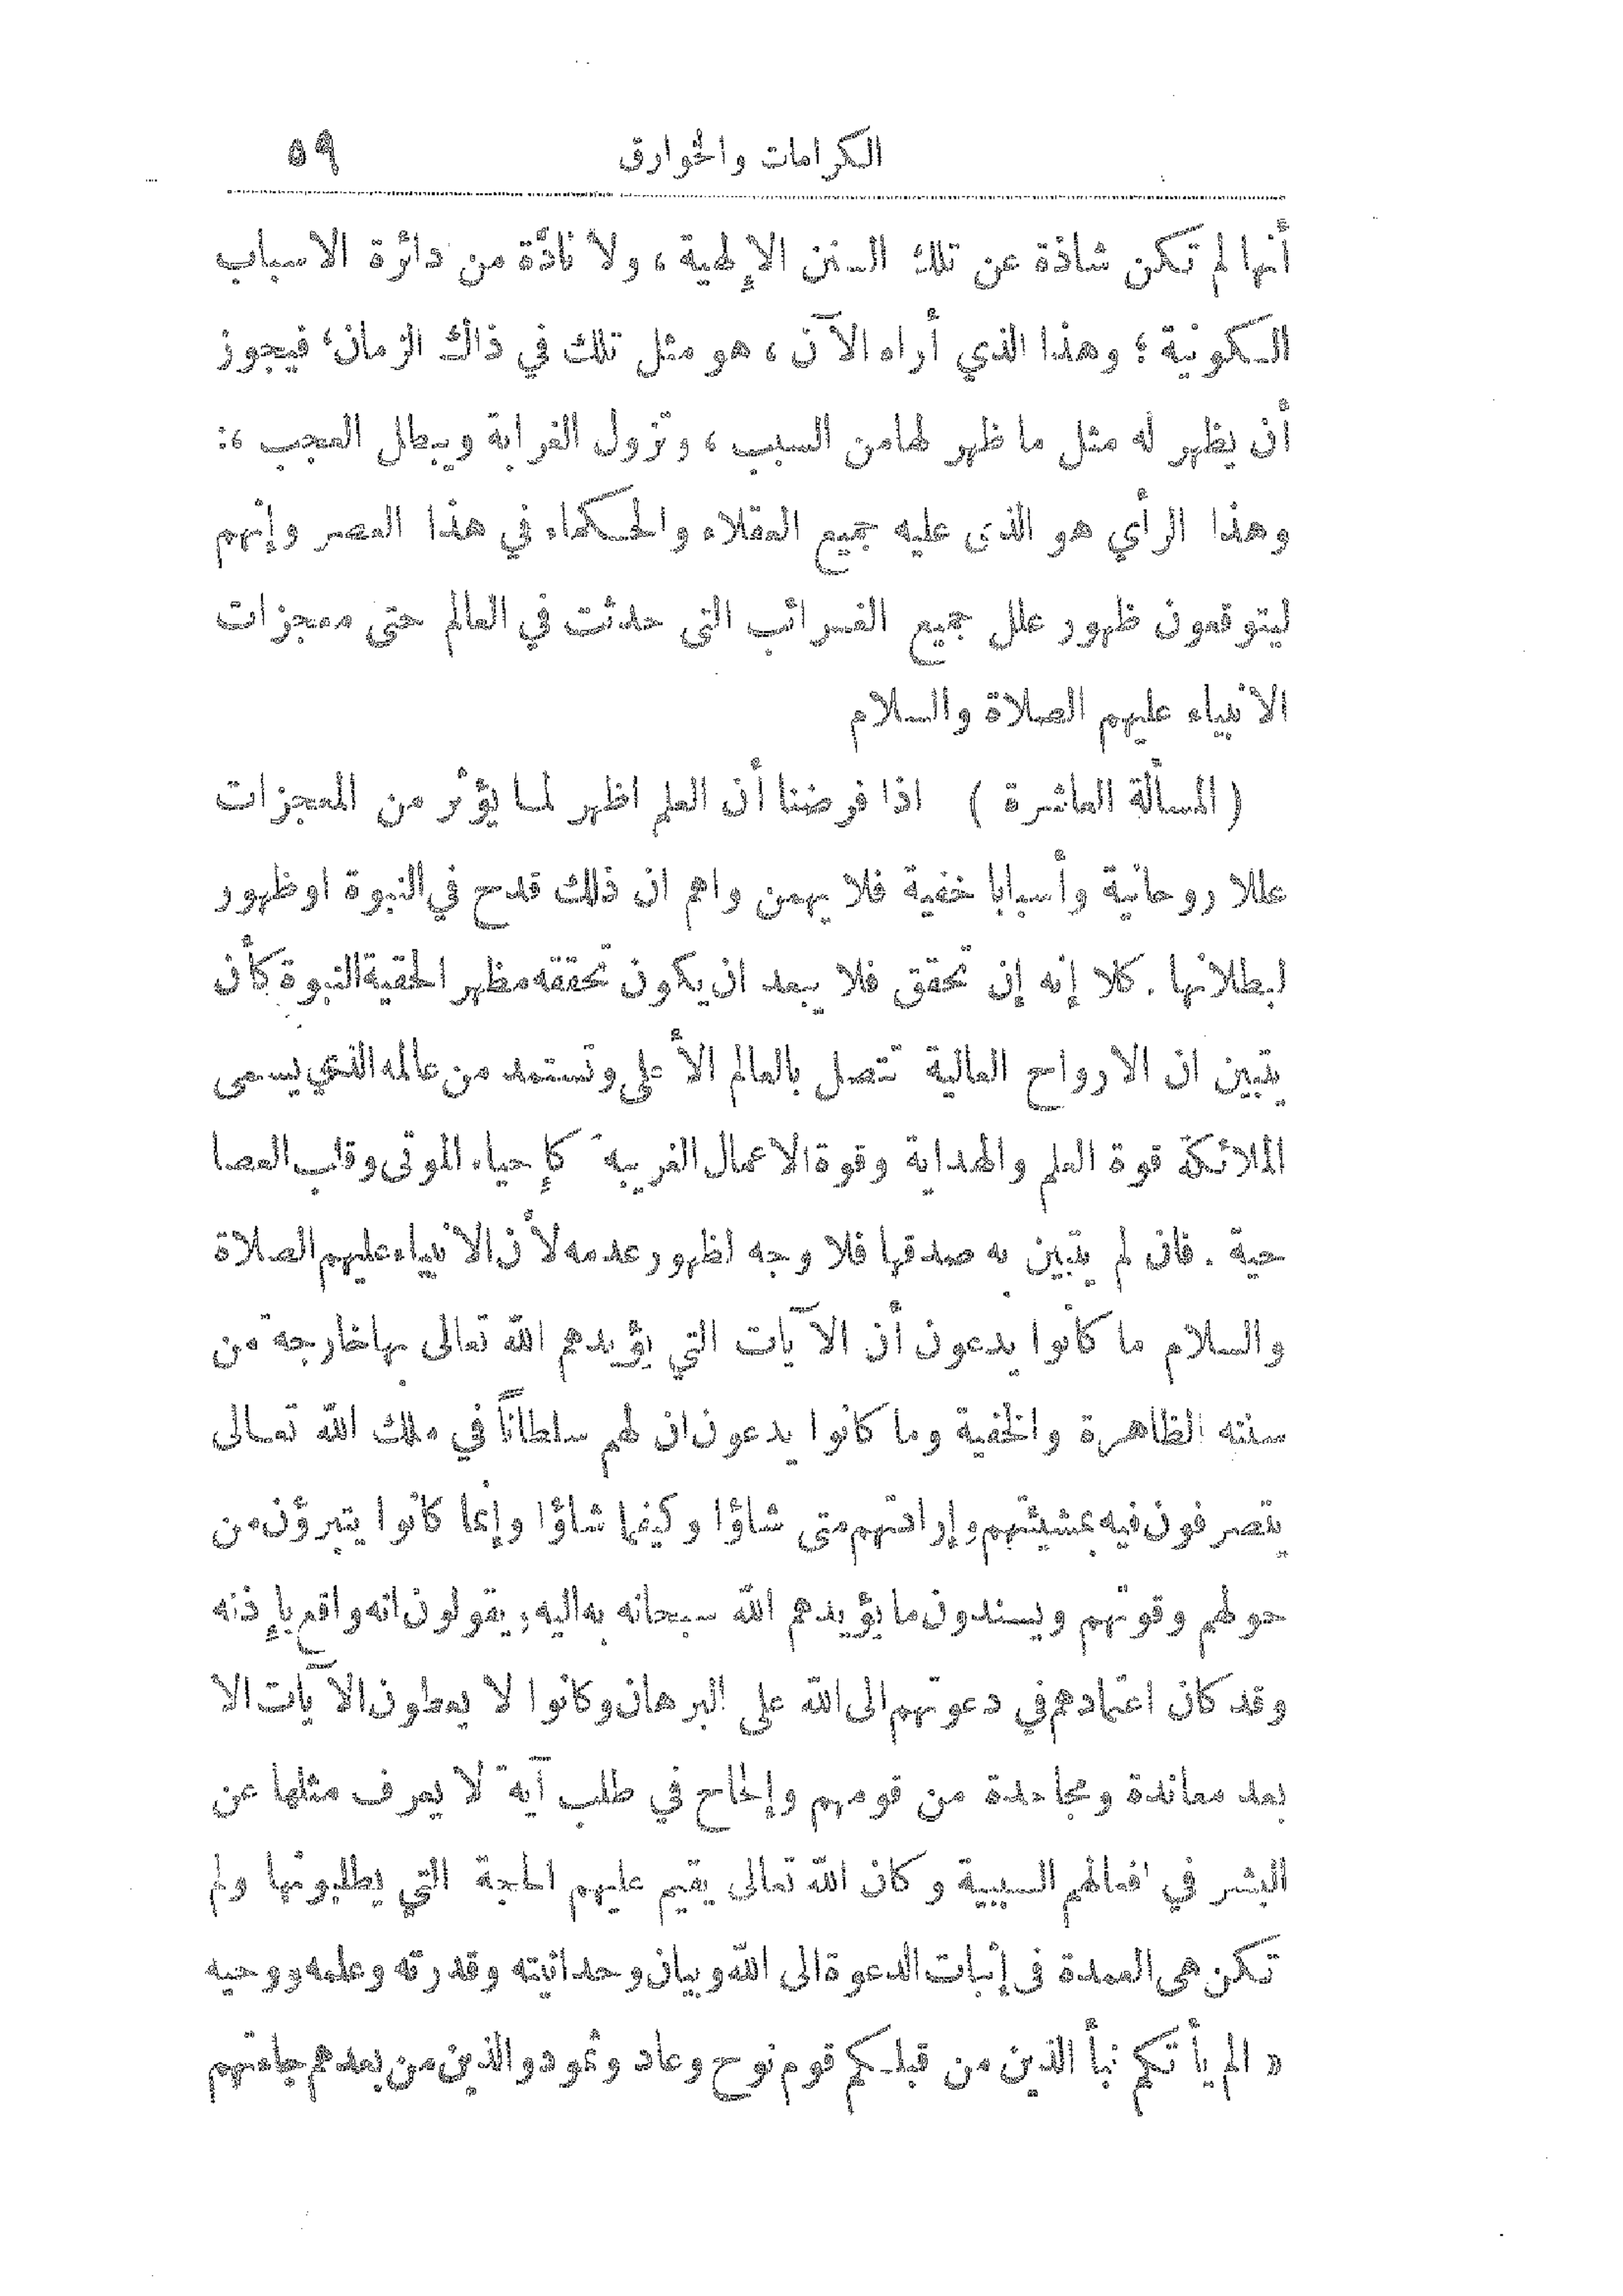 الكرامات والخوارق ٥٩
أنها لم تكن شاذة عن تلك السنن الإلهية ، ولا نادّة من دائرة الاسباب
الكونية ؛ وهذا الذي أراه الآن ، هو مثل تلك في ذاك الزمان ؛ فيجوز
أن يظهر له مثل ما ظهر لها من السبب ، وتزول الغرابة ويبطل العجب ،:
وهذا الرأي هو الذى عليه جميع العقلاء والحكماء في هذا العصر وإنهم
ليتوقعون ظهور علل جميع الغرائب التى حدثت في العالم حتى معجزات
الانبياء عليهم الصلاة والسلام
( المسألة العاشرة ) اذا فرضنا أن العلم اظهر لما يؤثر من المعجزات
عللا روحانية وأسبابا خفية فلا يهمن واهم ان ذلك قدح في النبوة او ظهور
لبطلانها . كلا إنه إن تحقق فلا يبعد ان يكون تحققه مظهر الحقية النبوة كأن
يتبين ان الارواح العالية تتصل بالعالم الأعلى وتستمد من عالمه الذي يسمى
الملائكة قوة العلم والهداية وقوة الاعمال الغريبة كإحياء الموتى وقلب العصا
حية . فان لم يتبين به صدقها فلا وجه لظهور عدمه لأن الانبياء عليهم الصلاة
والسلام ما كانوا يدعون أن الآيات التي يؤيدهم الله تعالى بها خارجة من
سننه الظاهرة والخفية وما كانوا يدعون ان لهم سلطاناً في ملك الله تعالى
يتصرفون فيه بمشيئتهم وإرادتهم متى شاؤا وكيفما شاؤا وإنما كانوا يتبرؤن من
حولهم وقوتهم ويسندون ما يؤيدهم الله سبحانه به اليه ويقولون انه واقع بإذنه
وقد كان اعتمادهم في دعوتهم الى الله على البرهان وكانوا لا يعطون الآيات الا
بعد معاندة ومجاحدة من قومهم وإلحاح في طلب آية لا يعرف مثلها عن
البشر في افعالهم السببية وكان الله تعالى يقيم عليهم الحجة التي يطلبونها ولم
تكن هى العمدة فى إثبات الدعوة الى الله وبيان وحدانيته وقدرته وعلمه ووحيه
« الم يأتكم نبأ الذين من قبلكم قوم نوح وعاد وثمود والذين من بعدهم جاءتهم